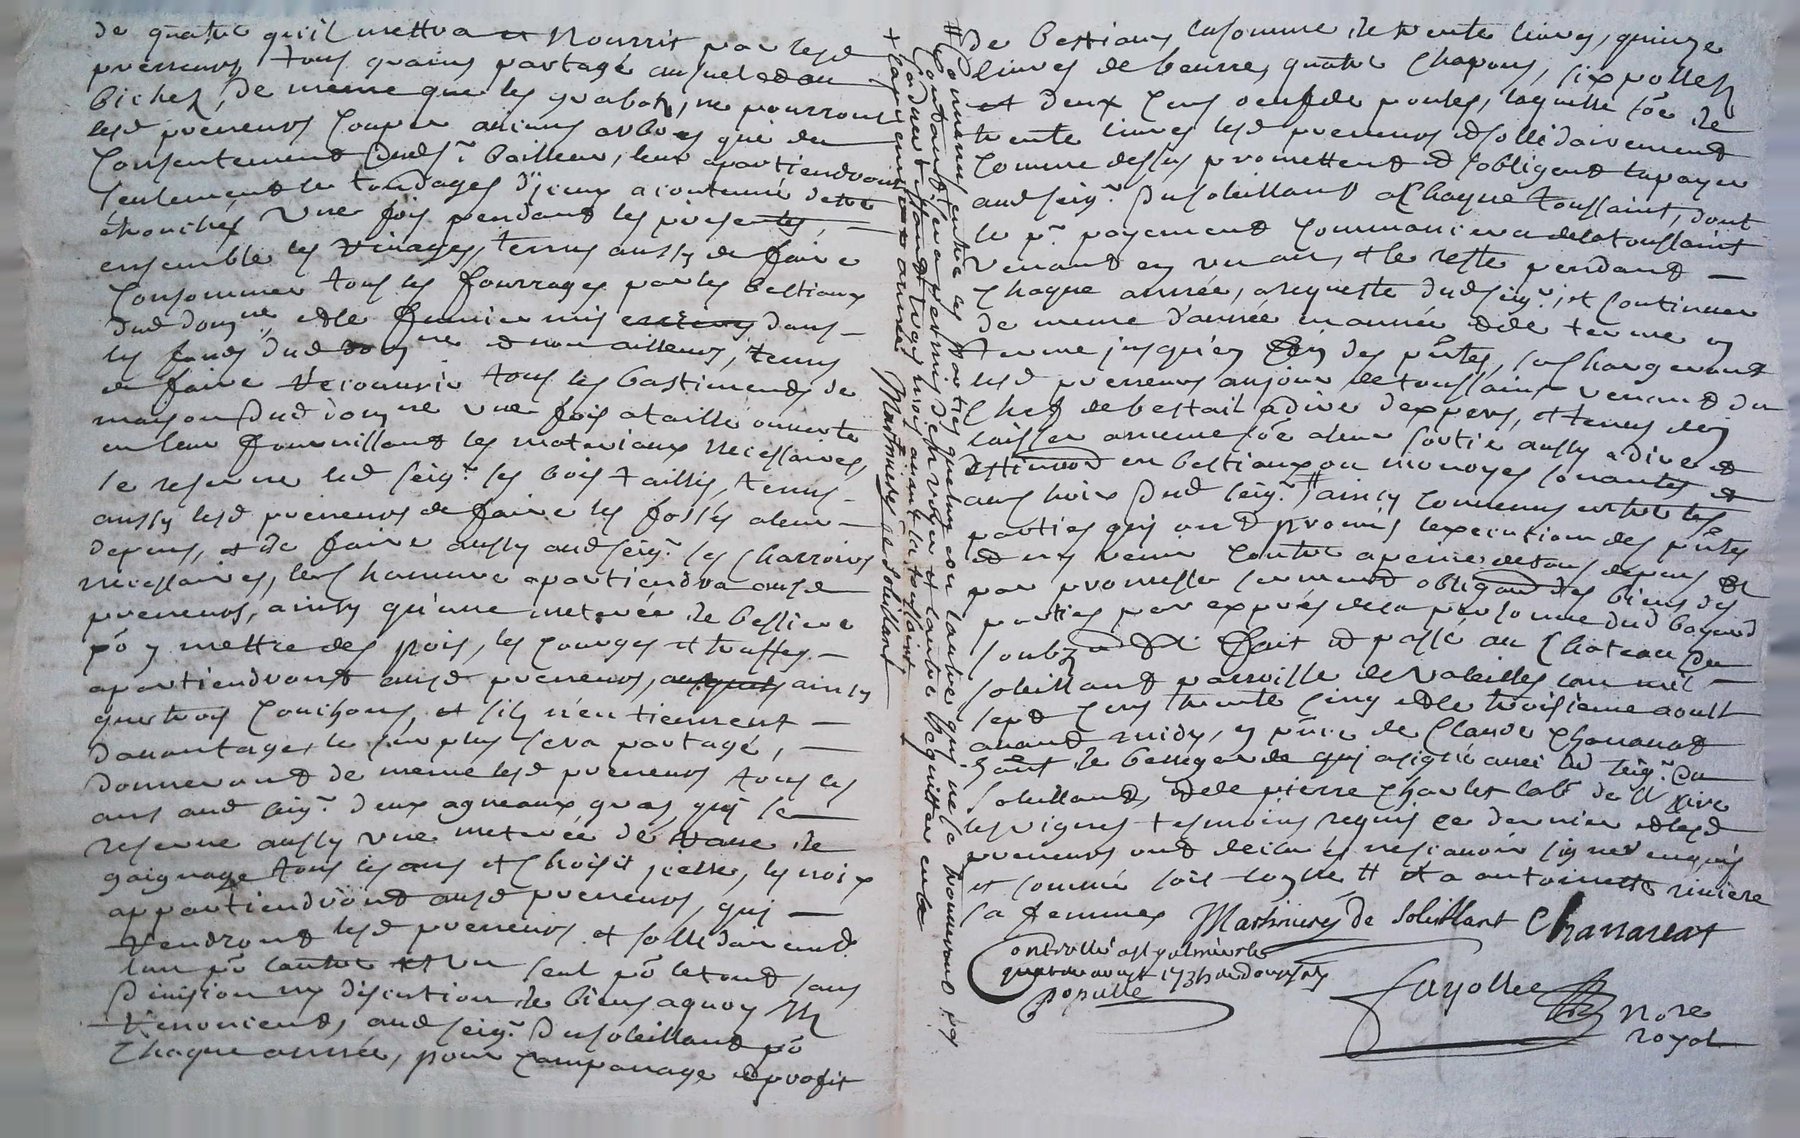 de quatre qu'il mettra et nourrir par lesd
preneurs, tous grains partagé
bichez, de meme que les ne pourront
lesd preneurs couper aucuns arbres que du
Consentement dud sr bailleur, leur apartiendront
seulement les tondages d'iceux a coutume
une fois pendant les presentes,
ensemble les tenus aussy de faire
Consommer tous les fourrages par les bestiaux
dud domne et le fumier mis dans
les fonds dud domne et non ailleurs, tenus
de faire recouvrir tous les bastiments de
maison dud domne une fois a taille ouverte
en leur fournissant les materiaux necessaires,
se reserve led seigr les bois taillis, tenus
aussy lesd preneurs de faire les fossés a leur
depens, et de faire aussy aud seigr les charrois
necessaires, le chanvre apartiendra ausd
preneurs, ainsy qu'une meterée de
po y mettre des pois, les courges et truffes
apartiendront ausd preneurs, ainsy
que trois couchons, et s'ils n'en tiennent
davantage, le surplus sera partagé,
donneront de meme lesd preneurs tous les
ans aud seigr deux agneaux gras, qui se
reserve aussy une meterée de terre de
gaignage tous les ans et choisit icelle, les noix
appartiendront ausd preneurs, qui
tiendront lesd preneurs et sollidairement
l'un po l'autre et un seul po le tout sans
division ny discution de biens a quoy ils
renoncent, aud seigr du soleillant po
Chaque année, pour campanage et profit
+ année Martinieres de soleillant
# Convenu entre les parties que l'un ou l'autre qui ne se trouveront pas
Content sera permis de et l'autre de quitter en se
trois mois avant la toussaint
de bestiaux la somme de trente livres, quinze
livres de beurre, quatre chapons, six polles
et deux cens oeufs de poules, laquelle soe de
trente livres lesd preneurs et sollidairement
Comme dessus promettent et s'obligent la payer
aud seigr du soleillant a chaque toussaint, dont
le pr payement commancera de la toussaint
venant en un an, et le reste pendant
Chaque année, a requeste dud seigr, et continuer
de meme d'année en année et de terme en
terme jusqu'en fin des pntes, se chargeront
lesd preneurs au jour de toussaint venant du
chef de bestail a dire d'expers, et tenus d'en
laisser a meme soe a leur sortie aussy a dire
en bestiaux ou monoyes sonantes
au choix dud seigr # ainsy convenu entre les
parties qui ont promis l'execution des pntes
et n'y venir contre a peine de tous depens et
par promesse serment obligaon des biens des
parties par exprés de la personne dud bayard
soubzon &c Fait et passé au Chateau du
soleillant parroisse de valeilles l'an mil
sept cens trente cinq et le troisieme aoust
avant midy, en pnce de Claude Chanavat
de qui a signé avec led seigr du
soleillant, et de pierre Charles labr de
les vignes tesmoins requis ce dernier et lesd
preneurs ont declaré ne scavoir signer enquis
et sommé soit # et a antoinette riviere
sa femme Martinieres de soleillant Chanavat
Controllé a st galmier le
quatre aoust 1735
populle
fayolle nore
royal